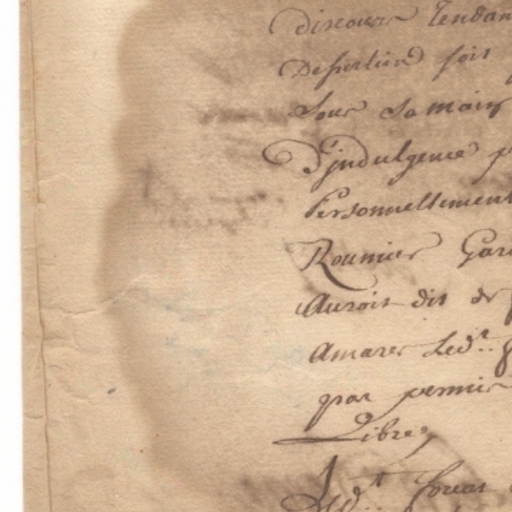 discours Tendan
Desertion soit
Sous sa main
D'jndulgence p
Personnellement
Rounier Gar
Auroit dit de
Amarer Led.t
par permis
Libre
Led.t